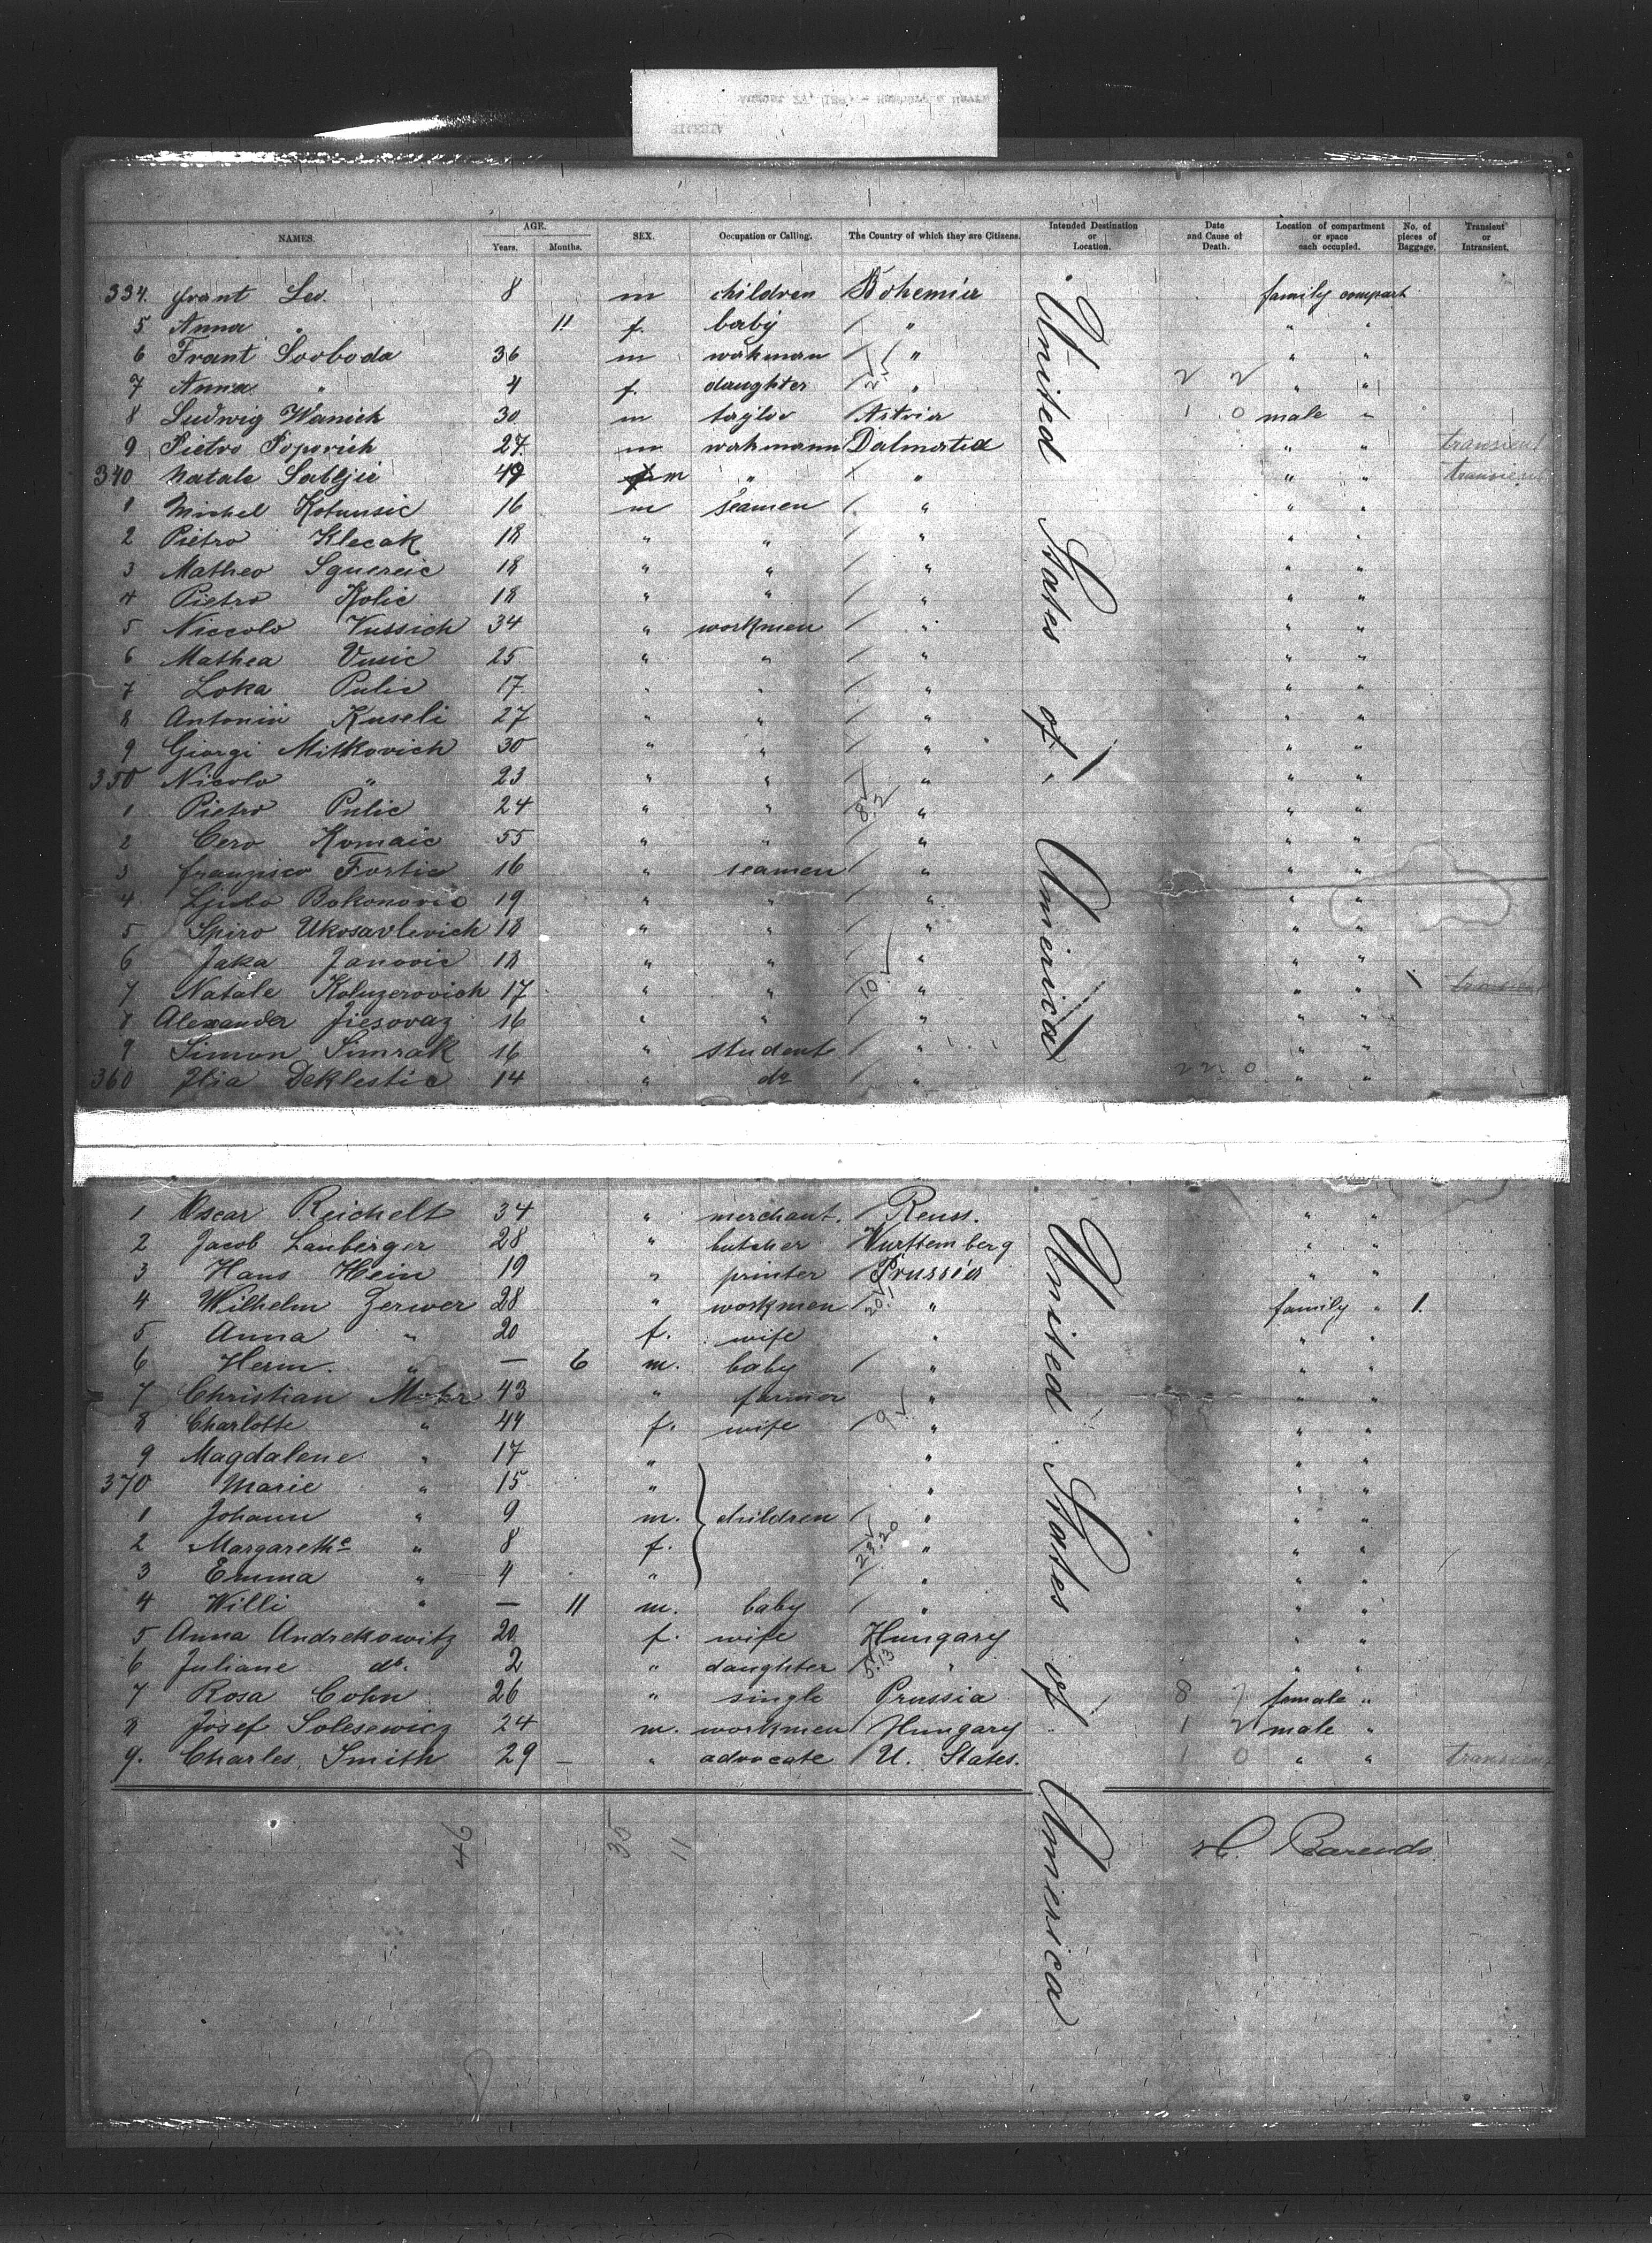 NAMES. AGE. Years. Months. SEX. Occupation or Calling. The Country of which they are Citizens. Intended Destination or Location. Date and Cause of Death. Location of compartment or space each occupied. No. of pieces of Baggage. Transient or Intransient.
334. Frant Led. 8 m children Bohemia family compart
5 Anna " 11 f. baby / " " "
6 Frant Svoboda 36 m wokman / " " "
7 Anna " 4 f. daughter / " 2 2 " "
8 Ludwig Wanich 30 m taylor / 1 0 male "
9 Pietro Popovich 27. m wokmann Dalmatia " " transient
340 Natale Sabljic 49 m " " " " transient
1 Michel 16 m seamen / " " "
2 Pietro Klecak 18 " " / " " "
3 Matheo Squereic 18 " " / " " "
4 Pietro Kolic 18 " " / " " "
5 Niccolo Vussich 34 " workmen / " " "
6 Mathea Vusic 25 " " / " " "
7 Loka Pulic 17 " " / " " "
8 Antonin Kuseli 27 " " / " " "
9 Giorgi Mitkovich 30 " " / " " "
350 Nicolo " 23 " " / " " "
1 Pietro Pulic 24 " " 8.2 " " "
2 Cero Komaic 55 " " / " " "
3 Franzisco Fortic 16 " seamen / " " "
4. Ljubo Bokonovic 19 " " / " " "
5 Spiro Ukosavlevich 18 " " / " " "
6 Jaka Janovic 18 " " / " " "
7 Natale Koluzerovich 17 " " 10. " " " 1 transient
8 Alexander Jiesovaz 16 " " / " " "
9 Simon Simrak 16 " student / " " "
360 Ilia Deklestic 14 " do / " 22 0 " "
United States of America
1 Oscar Reichelt 34 " merchant. Reuss. " "
2 Jacob Lauberger 28 " butcher Wurttemberg " "
3 Hans Hein 19 " printer / Prussia " "
4 Wilhelm Zerwer 28 " workmen / 20.1 " family " 1.
5 Anna " 20 f. wife " " "
6 Herm. " — 6 m. baby / " " "
7 Christian Mohr 43 " farmer " " "
8 Charlotte " 44 f. wife / 9 " " "
9 Magdalene " 17 " " " "
370 Marie " 15 " " " "
1 Johann " 9 m. children / " " "
2 Margarethe " 8 f. 23.20 " " "
3 Emma " 4 " / " " "
4 Willi " — 11 m. baby / " " "
5 Anna Andrekowitz 20 f. wife Hungary " "
6 Juliane do. 2 " daughter / 5.13 " " "
7 Rosa Cohn 26 " single Prussia 8 7 female "
8 Josef Solesewicz 24 m. workmen / Hungary 1 2 male "
9. Charles Smith 29 — " advocate / U. States. 1 0 " " transient
United States of America
46 35 11
H. Barends.